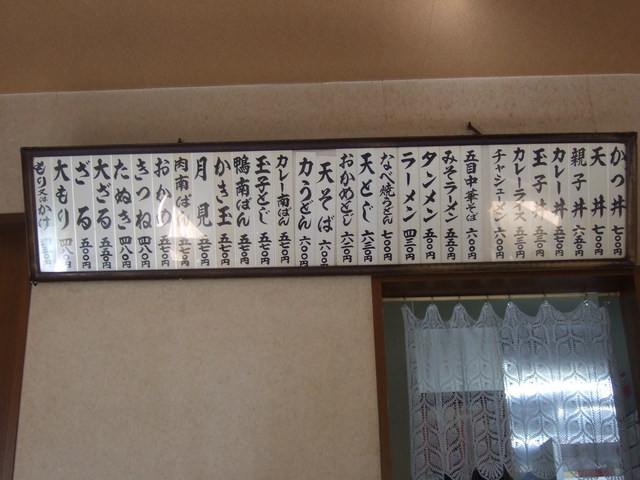 かつ丼 七〇〇円
天丼 七〇〇円
親子丼 六五〇円
カレー丼 五七〇円
玉子丼 五七〇円
カレーライス 五三〇円
チャシューメン 六〇〇円
五目中華そば 六〇〇円
みそラーメン 五五〇円
タンメン 五〇〇円
ラーメン 四三〇円
なべ焼うどん 七〇〇円
天とじ 六三〇円
おかめとじ
天そば 六〇〇円
力うどん 六〇〇円
カレー南ばん 五七〇円
玉子とじ 五二〇円
鴨南ばん 五七〇円
かき玉 五二〇円
月見
肉南ばん
おかめ
きつね 四八〇円
たぬき 四八〇円
大ざる 五五〇円
ざる 五〇〇円
大もり 四八〇円
もり又はかけ